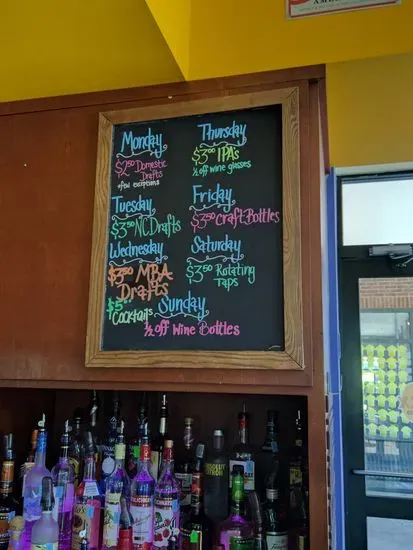 Monday
$2.50 Domestic
Drafts
*few exceptions
Tuesday
$3.50 NC Drafts
Wednesday
$3.50 MBA
Drafts
$5
Cocktails
Thursday
$3.00 IPA's
½ off wine glasses
Friday
$3.50 Craft Bottles
Saturday
$3.50 Rotating
Taps
Sunday
½ off Wine Bottles